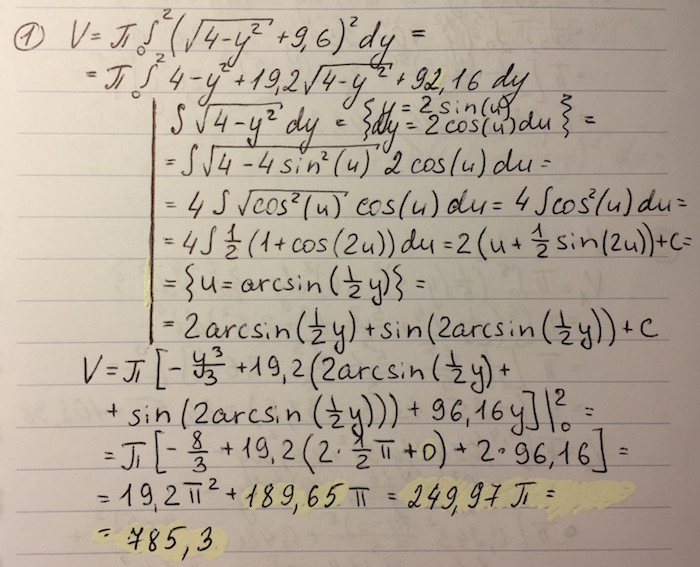 ① V = π ₀∫² (√(4-y²) + 9,6)² dy =
= π ₀∫² 4-y² + 19,2√(4-y²) + 92,16 dy
∫ √(4-y²) dy = {y = 2 sin(u)
dy = 2 cos(u) du} =
= ∫ √(4-4 sin²(u)) 2 cos(u) du =
= 4 ∫ √(cos²(u)) cos(u) du = 4 ∫ cos²(u) du =
= 4 ∫ ½ (1+cos(2u)) du = 2(u + ½ sin(2u)) + C =
= {u = arcsin(½y)} =
= 2 arcsin(½y) + sin(2 arcsin(½y)) + C
V = π [-y³/3 + 19,2(2 arcsin(½y) +
+ sin(2 arcsin(½y))) + 96,16y]|₀² =
= π [-8/3 + 19,2(2·½π + 0) + 2·96,16] =
= 19,2π² + 189,65π = 249,97π =
= 785,3